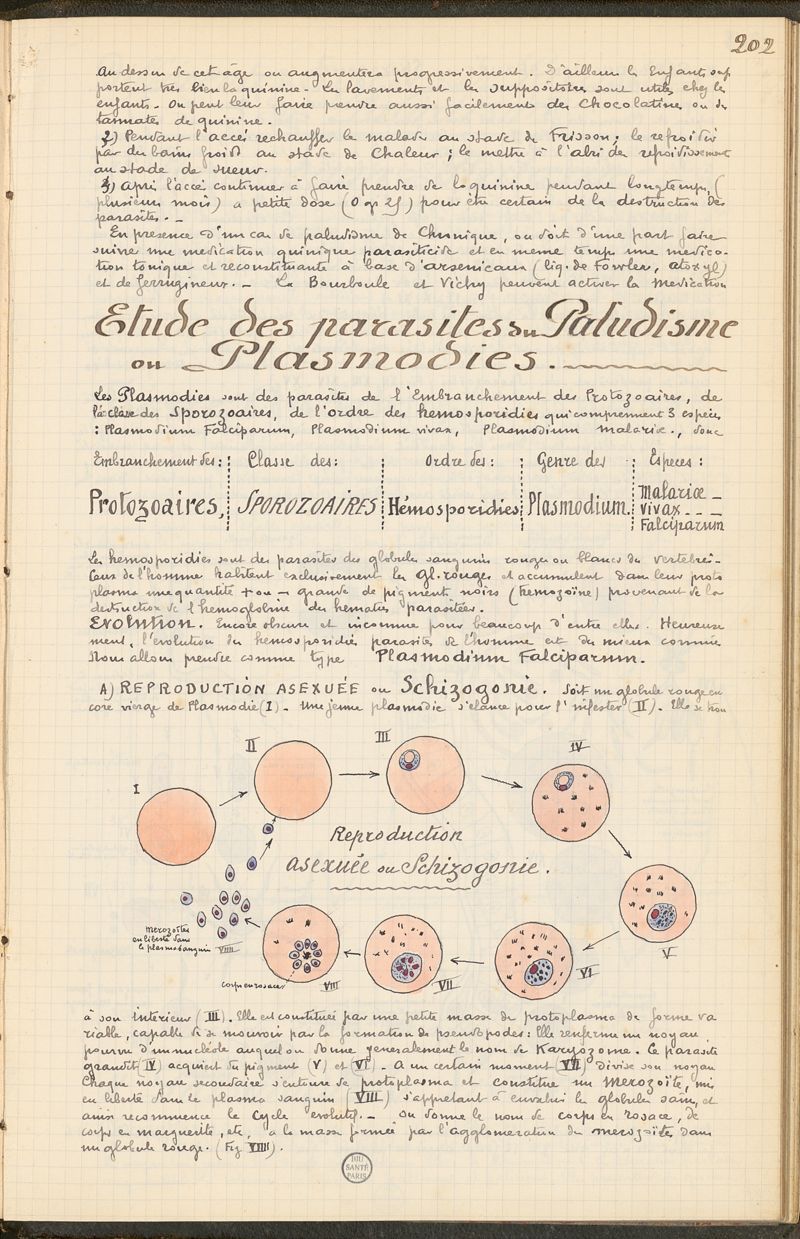 202
Au dessus de cet âge on augmentera progressivement. D'ailleurs les Enfants sup
portent très bien la quinine - Les lavements et les suppositoires sont utiles chez les
enfants. On peut leur faire prendre aussi facilement des Chocolatine ou des
tannates de quinine.
2) Pendant l'accès rechauffer le malade au stade de Frisson; le refroidir
par des bains froids au stade de Chaleur; le mettre à l'abri des refroidissement
au stade de sueur.
3) Après l'accès continuer à faire prendre de la quinine pendant longtemps, (
plusieurs mois) a petite dose (0 gr 25) pour être certain de la destruction des
parasites. -
En presence d'un cas de paludisme de Chronique, on doit d'une part faire
suivre une medication quinique parasiticide et en meme temps une medica-
tion tonique et reconstituante à base d'arsenicaux (liq. de Fowler, atoxyl)
et de ferrugineux. - La Bourboule et Vichy peuvent activer la medication
Etude des parasites du Paludisme
ou Plasmodies.
Les Plasmodies sont des parasites de l'Embranchement des Protozoaires, de
la classe des Sporozoaires, de l'ordre des hemosporidies qui comprennent 3 especes
: Plasmodium Falciparum, Plasmodium vivax, Plasmodium malariæ., donc
Embranchement des: Classe des: Ordre des: Genre des Especes:
Protozoaires, SPOROZOAIRES Hémosporidies Plasmodium. Malariæ -
vivax - - -
Falciparum
Les hemosporidies sont des parasites des globules sanguins rouges ou blancs des vertebrés-
Ceux de l'homme habitent exclusivement les gl. rouges et accumulent dans leur proto
plasma une quantité + ou - grande de pigments noirs (hemozoïne) provenant de la
destruction de l'hemoglobine des hematies parasitées.
Evolution. Encore obscure et inconnue pour beaucoup d'entre elles. Heureuse
ment, l'evolution des hemosporidies parasites de l'homme est des mieux connues
Nous allons prendre comme type Plasmodium Falciparum.
A) REPRODUCTION ASEXUÉE ou Schizogonie. Soit un globule rouge en
core vierge de Plasmodie (I) - Une jeune plasmodie s'elance pour l'infester (II). Elle se trouv
I
II
III
IV
Reproduction
asexuée ou Schizogonie.
merozoïtes
en liberté dans
le plasma sanguin VIIII
corps en rosace
VIII
VII
VI
V
à son intérieur (III). Elle est constituée par une petite masse de protoplasma de forme va
riable, capable de se mouvoir par la formation de pseudopodes: Elle renferme un noyau
pourvu d'un nucléole auquel on donne generalement le nom de Karyozome. Ce parasite
grandit (IV) acquiert du pigment (V) et (VI). - A un certain moment (VII) divise son noyau
Chaque noyau secondaire s'entoure de protoplasma et constitue un merozoïte, mis
en liberté dans le plasma sanguin (VIII) s'appretant à envahir les globules sains, et
ainsi recommence le cycle evolutif. - On donne le nom de corps en rosace, de
corps en marguerite, etc, a la masse formée par l'agglomeration des merozoïtes dans
un globule rouge. (Fig VIIII).
BIU
SANTÉ
PARIS